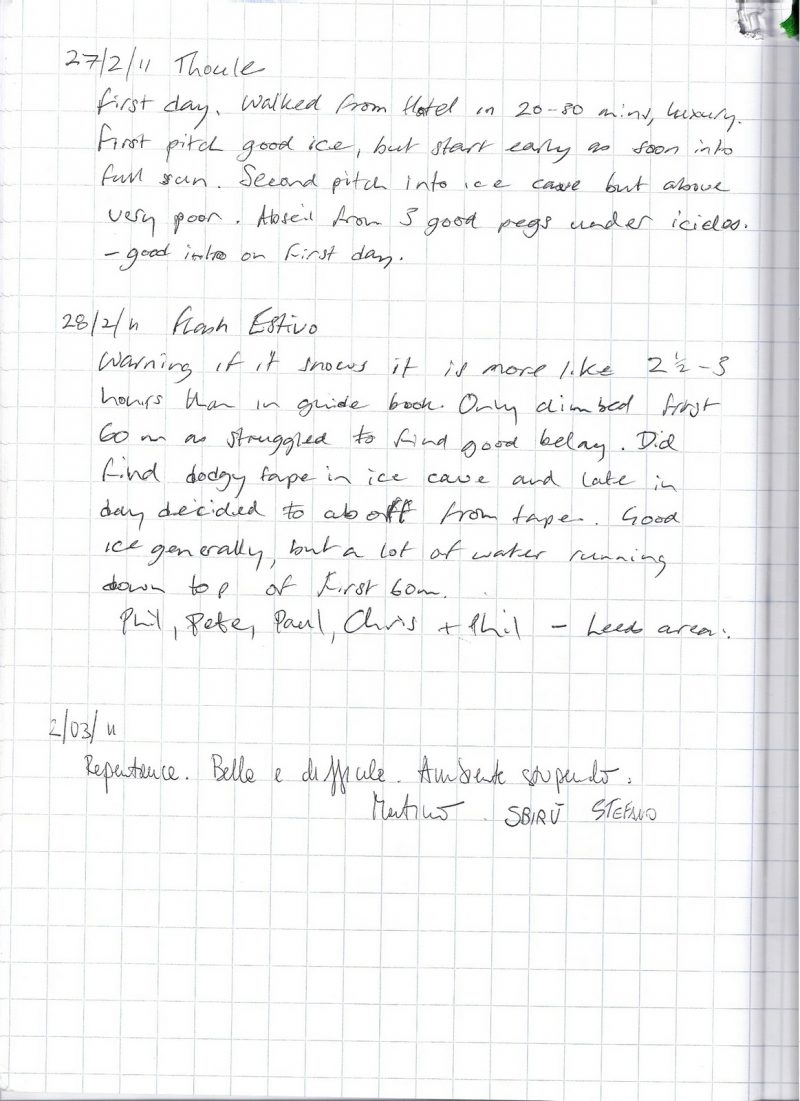 27/2/11 Thoule
First day. Walked from Hotel in 20-30 mins, luxury.
First pitch good ice, but start early as soon into
full sun. Second pitch into ice cave but above
very poor. Abseil from 3 good pegs under icicles.
- good intro on first day.
28/2/11 Flash Estivo
Warning if it snows it is more like 2½-3
hours than in guide book. Only climbed first
60m as struggled to find good belay. Did
find dodgy tape in ice cave and late in
day decided to ab off from tape. Good
ice generally, but a lot of water running
down top of first 60m.
Phil, Pete, Paul, Chris + Phil - Leeds area.
2/03/11
Repentance. Bella e difficile. Ambiente stupendo.
SBIRÙ STEFANO